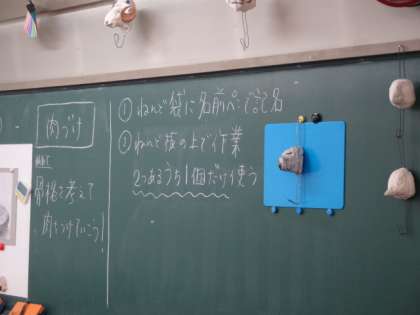 肉づけ
骨格を考えて
肉をつけていこう!
① ねんど袋に名前ペンで記名
② ねんど板の上で作業
2つあるうち1個だけ使う